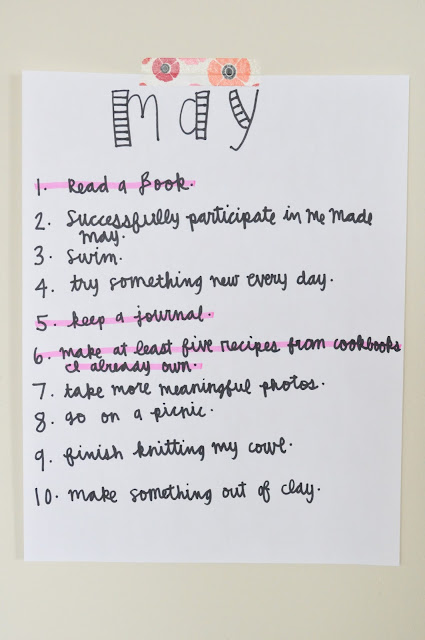 may
1. Read a Book.
2. Successfully participate in me made
may.
3. Swim.
4. try something new every day.
5. keep a journal.
6. make at least five recipes from cookbooks
I already own.
7. take more meaningful photos.
8. go on a picnic.
9. finish knitting my cowl.
10. make something out of clay.